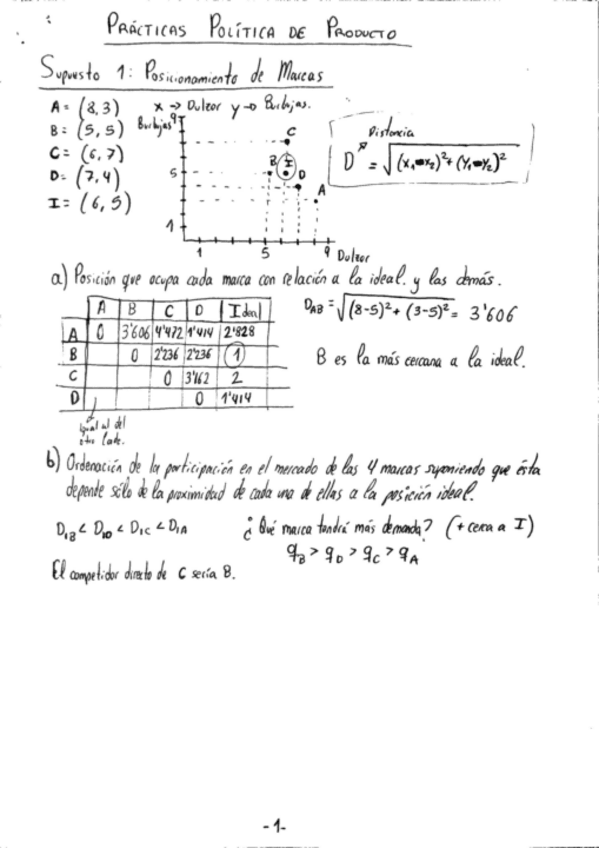 PRÁCTICAS POLÍTICA DE PRODUCTO
Supuesto 1: Posicionamiento de Marcas
A = (8,3)
B = (5,5)
C = (6,7)
D = (7,4)
I = (6,5)
x → Dulzor y → Burbujas.
Burbujas 9
C
B I D
5
A
1
1 5 9 Dulzor
Distancia
D = √(x₁-x₂)²+(y₁-y₂)²
a) Posición que ocupa cada marca con relación a la ideal. y las demás.
A B C D Ideal
A 0 3'606 4'472 1'414 2'828
B 0 2'236 2'236 1
C 0 3'162 2
D 0 1'414
igual al del
otro lado.
D_AB = √(8-5)² + (3-5)² = 3'606
B es la más cercana a la ideal.
b) Ordenación de la participación en el mercado de las 4 marcas suponiendo que ésta
depende sólo de la proximidad de cada una de ellas a la posición ideal.
D_IB < D_ID < D_IC < D_IA
¿Qué marca tendrá más demanda? (+ cerca a I)
q_B > q_D > q_C > q_A
El competidor directo de C sería B.
-1-